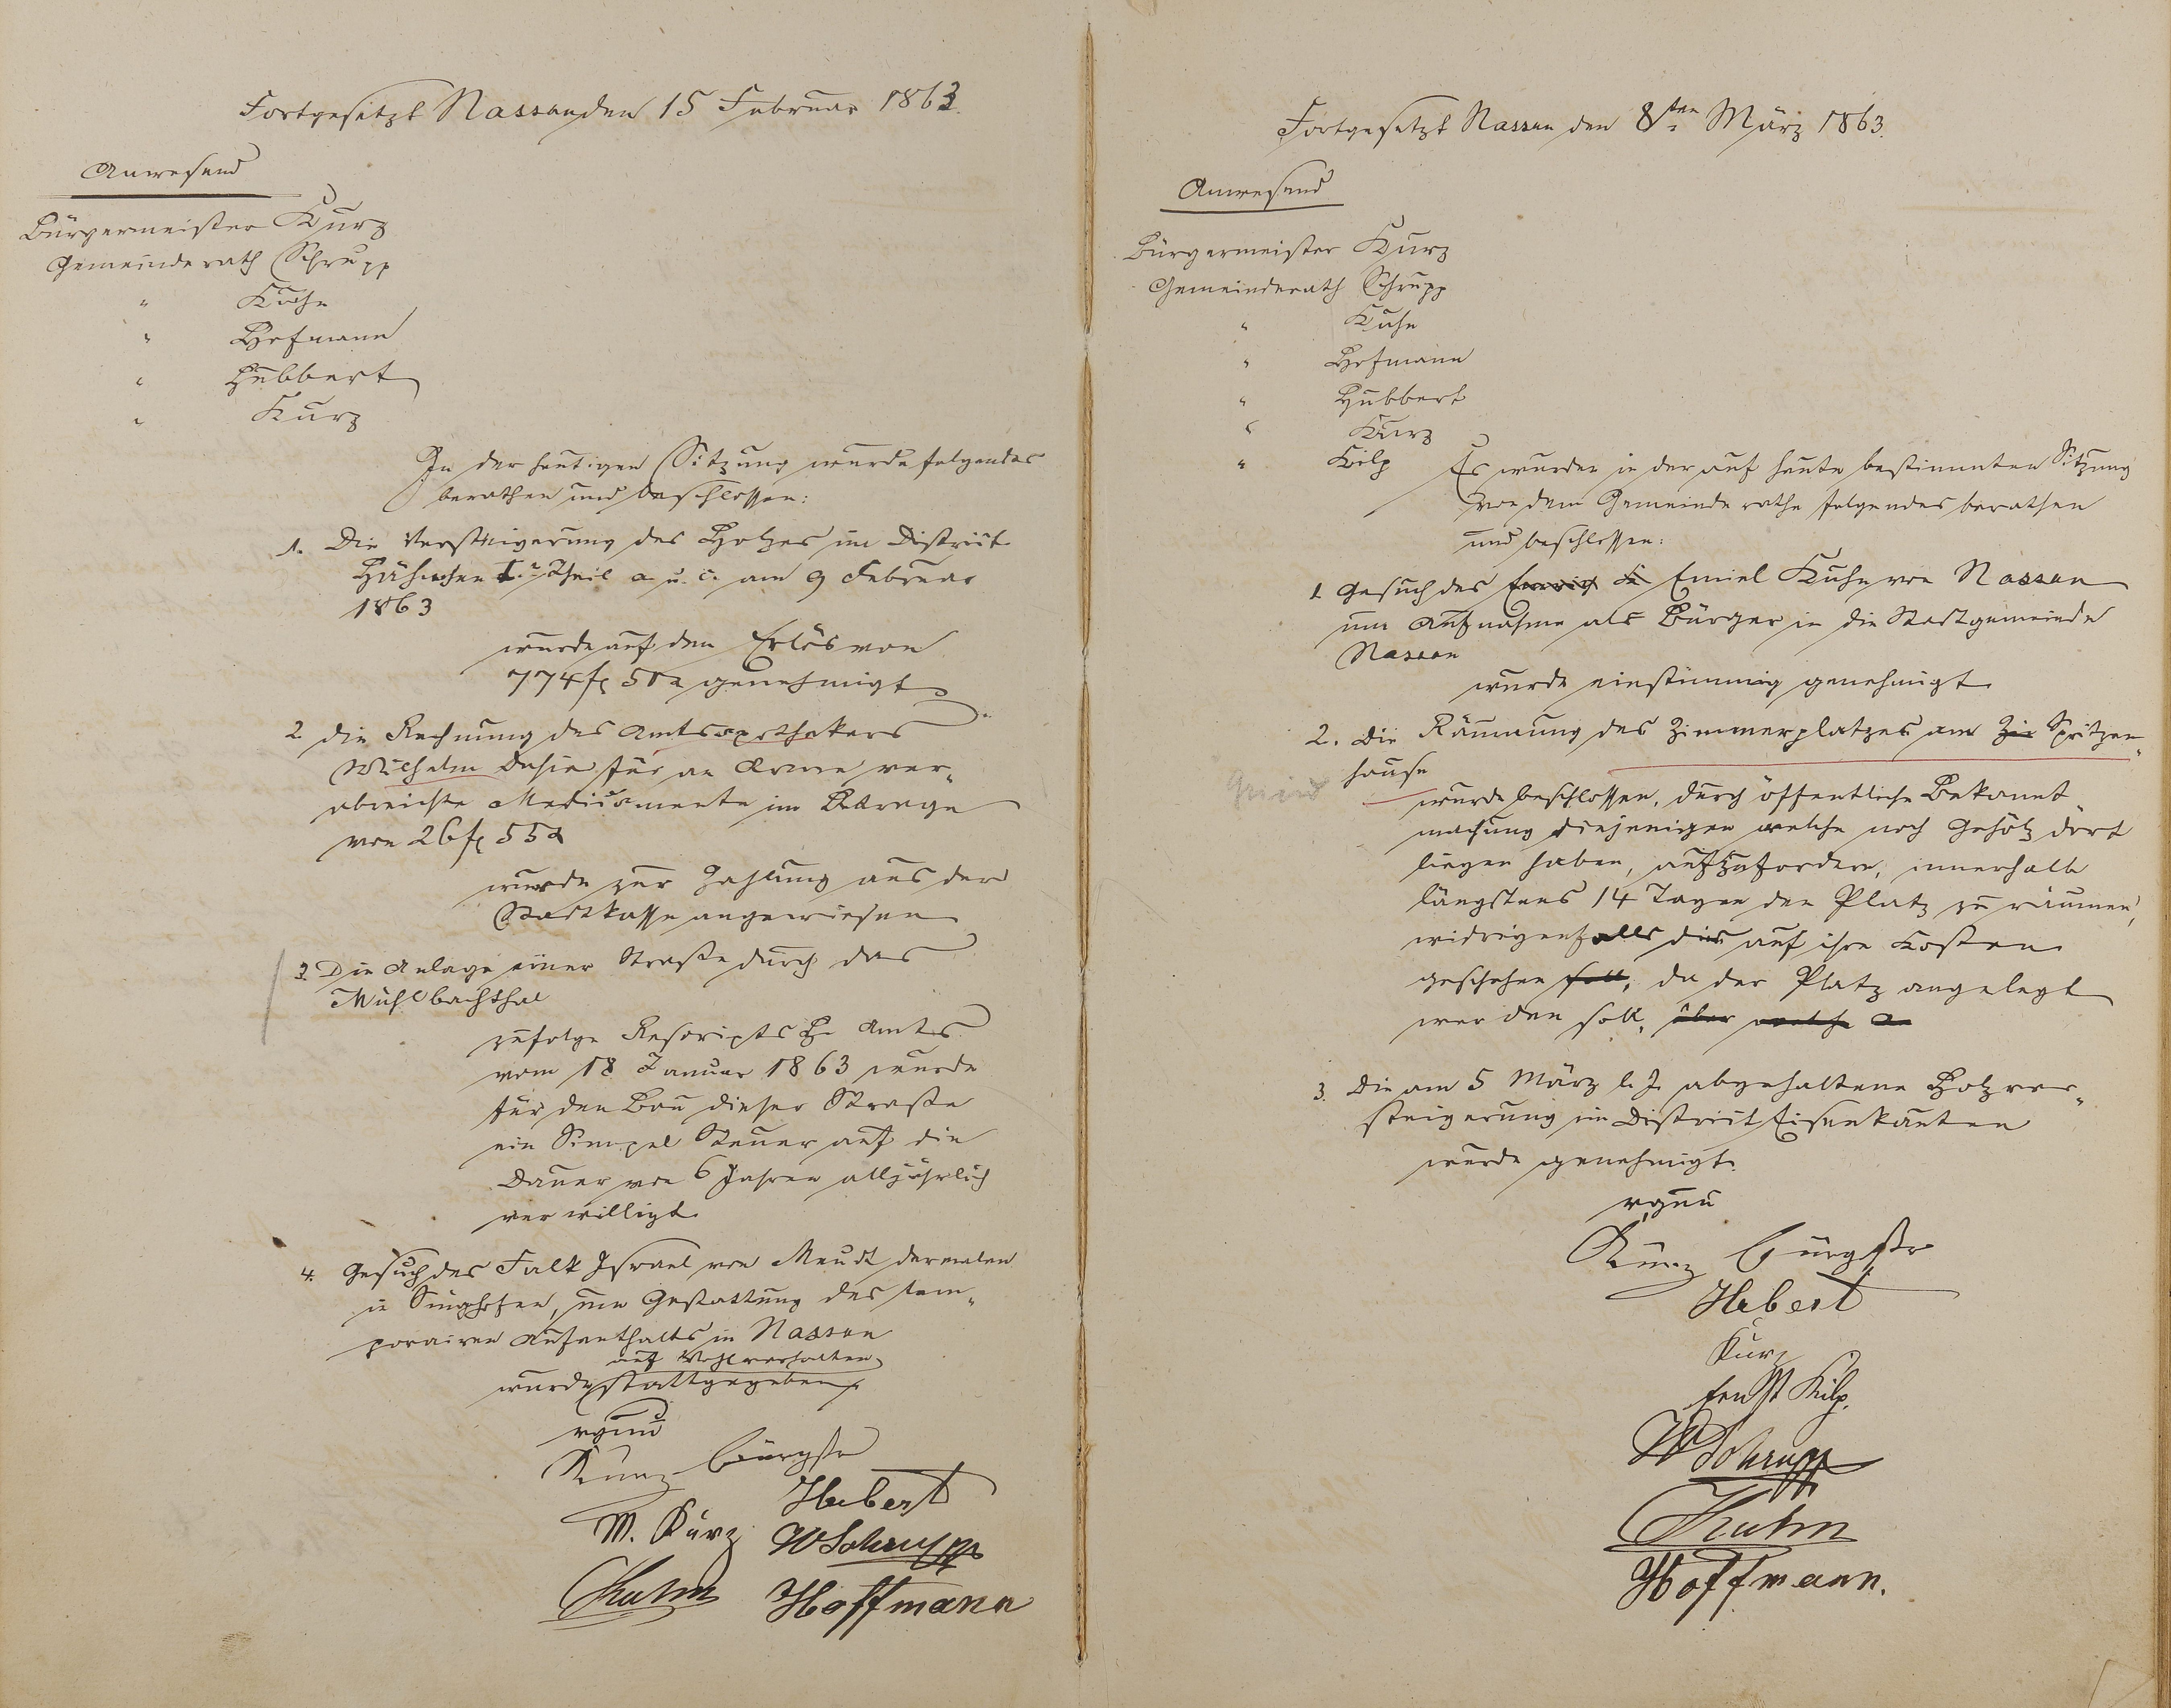 Fortgesetzt Nassau den 15 Februar 1863.
Anwesend
Bürgermeister Kurz
Gemeinderath Schrupp
" Kuhn
" Hofmann
" Hubbert
" Kurz
In der heutigen Sitzung wurde folgendes
berathen und beschlossen:
1. Die Versteigerung des Holzes im District
Theil a. u. c. am 9 Februar
1863
wurde auf den Erlös von
774 fl genehmigt
2 die Rechnung des Amtsapothekers
Wilhelm für an Arme ver-
abreichte Medicamente im Betrage
von 26 fl 55
wurde zur Zahlung aus der
Stadtkasse angewiesen
3. Die Anlage einer Straße durch das
Mühlbachthal
zufolge Rescripts H. Amts
vom 18 Januar 1863 wurde
für den Bau dieser Straße
ein Simpel Steuer auf die
Dauer von 6 Jahren alljährlich
verwilligt.
4. Gesuch des Falk Israel von Meudt dermalen
in Singhofen, um Gestattung des tem-
porairen Aufenthalts in Nassau
auf Wohlverhalten
wurde stattgegeben.
Kurz Bürgstr
Hubert
W. Kurz WSchrupp
Kuhn Hoffmann
Fortgesetzt Nassau den 8ten März 1863.
Anwesend
Bürgermeister Kurz
Gemeinderath Schrupp
" Kuhn
" Hofmann
" Hubbert
" Kurz
" Kilp
Es wurden in der auf heute bestimmten Sitzung
von dem Gemeinderathe folgendes berathen
und beschlossen:
1. Gesuch des Emiel Kuhn von Nassau
um Aufnahme als Bürger in die Stadtgemeinde
Nassau
wurde einstimmig genehmigt.
2. Die Räumung des Zimmerplatzes am Spritzen-
hause
wurde beschlossen, durch öffentliche Bekannt-
machung diejenigen welche noch Gehölz dort
liegen haben, aufzufordern, innerhalb
längstens 14 Tagen den Platz zu räumen,
widrigenfalls dies auf ihre Kosten
geschehen soll, da der Platz angelegt
werden soll, über welche a
3. Die am 5 März l. J. abgehaltene Holzver-
steigerung im District Eisenkauten
wurde genehmigt.
Kurz Bürgstr
Hubert
Kurz
Ernst Kilp.
W Schrupp
Kuhn
Hoffmann.